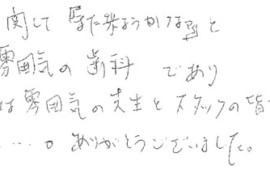 関して
と
雰囲気の歯科 であり
は雰囲気の先生とスタッフの皆
……。ありがとうございました。